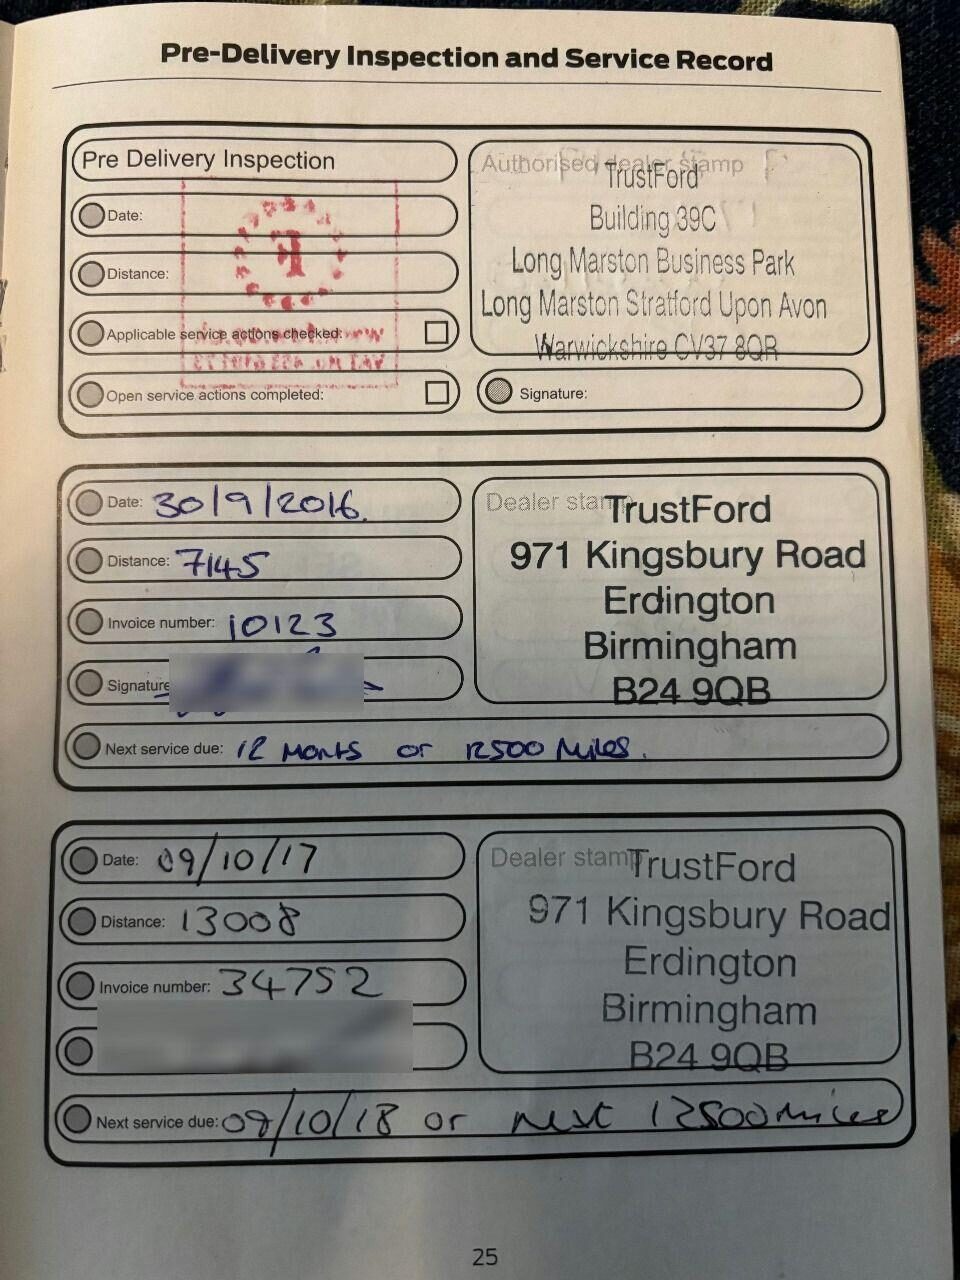 Pre-Delivery Inspection and Service Record
Pre Delivery Inspection
Date:
Distance:
Applicable service actions checked:
Open service actions completed:
Authorised dealer stamp
TrustFord
Building 39C
Long Marston Business Park
Long Marston Stratford Upon Avon
Warwickshire CV37 8QR
Signature:
Date: 30/9/2016.
Distance: 7145
Invoice number: 10123
Signature
Dealer stamp
TrustFord
971 Kingsbury Road
Erdington
Birmingham
B24 9QB
Next service due: 12 Monts or 12500 Miles.
Date: 09/10/17
Distance: 13008
Invoice number: 34752
Dealer stamp
TrustFord
971 Kingsbury Road
Erdington
Birmingham
B24 9QB
Next service due: 09/10/18 or next 12500 miles
25